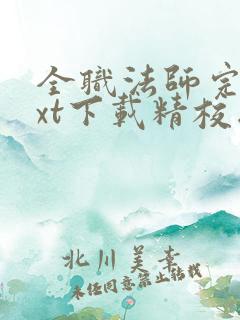 全職法師完
xt下載精校
北川美素
未经同意禁止转载